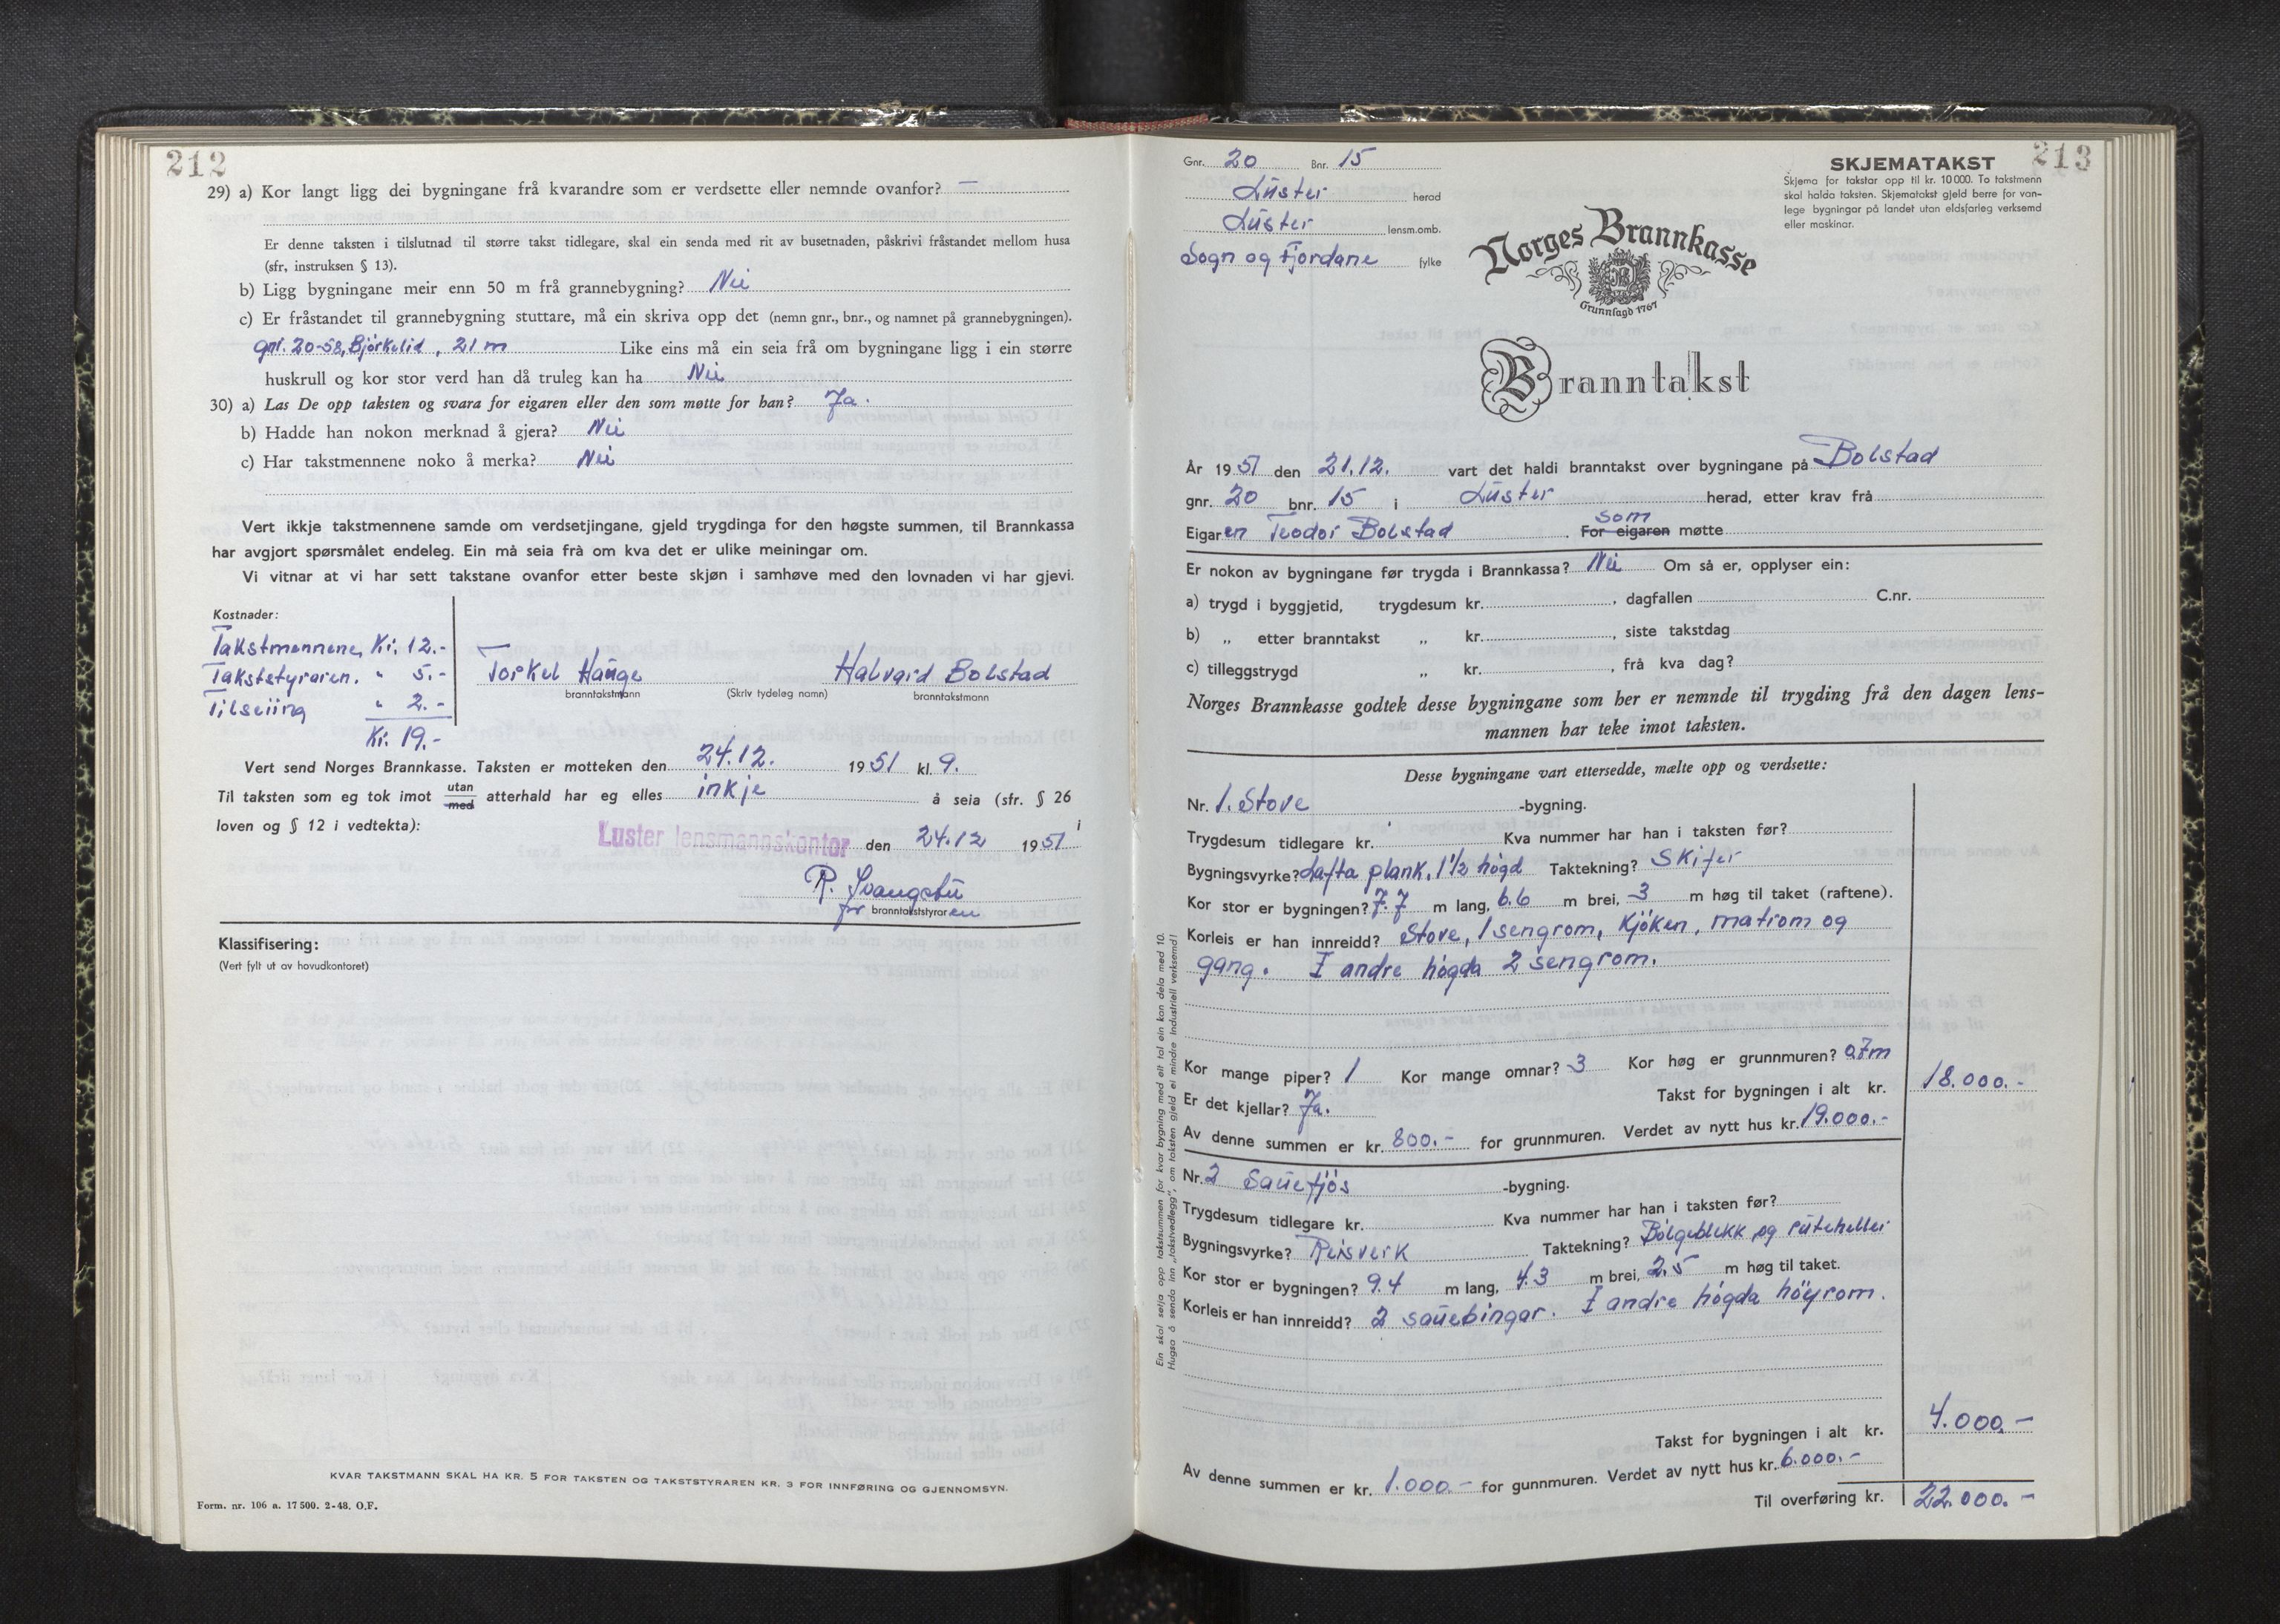 212
29) a) Kor langt ligg dei bygningane frå kvarandre som er verdsette eller nemnde ovanfor? —
Er denne taksten i tilslutnad til større takst tidlegare, skal ein senda med rit av busetnaden, påskrivi fråstandet mellom husa
(sfr, instruksen § 13).
b) Ligg bygningane meir enn 50 m frå grannebygning? Nei
c) Er fråstandet til grannebygning stuttare, må ein skriva opp det (nemn gnr., bnr., og namnet på grannebygningen).
gnr. 20-58, Bjørkelid, 21 m Like eins må ein seia frå om bygningane ligg i ein større
huskrull og kor stor verd han då truleg kan ha Nei
30) a) Las De opp taksten og svara for eigaren eller den som møtte for han? Ja.
b) Hadde han nokon merknad å gjera? Nei
c) Har takstmennene noko å merka? Nei
Vert ikkje takstmennene samde om verdsetjingane, gjeld trygdinga for den høgste summen, til Brannkassa
har avgjort spørsmålet endeleg. Ein må seia frå om kva det er ulike meiningar om.
Vi vitnar at vi har sett takstane ovanfor etter beste skjøn i samhøve med den lovnaden vi har gjevi.
Kostnader:
Takstmennene, Kr. 12.-
Takststyraren. " 5.-
Tilseiing " 2.-
Kr. 19.-
Torkel Hauge Halvard Bolstad
branntakstmann (Skriv tydeleg namn) branntakstmann
Vert send Norges Brannkasse. Taksten er motteken den 24.12. 1951 kl. 9.
Til taksten som eg tok imot utan med atterhald har eg elles inkje å seia (sfr. § 26 i
loven og § 12 i vedtekta):
Luster lensmannskontor den 24.12 1951
for branntakststyraren
Klassifisering:
(Vert fylt ut av hovudkontoret)
KVAR TAKSTMANN SKAL HA KR. 5 FOR TAKSTEN OG TAKSTSTYRAREN KR. 3 FOR INNFØRING OG GJENNOMSYN.
Form. nr. 106 a. 17 500. 2-48. O.F.
213
Gnr. 20 Bnr. 15
Luster herad
Luster lensm.omb.
Sogn og Fjordane fylke
SKJEMATAKST
Skjema for takstar opp til kr. 10 000. To takstmenn
skal halda taksten. Skjematakst gjeld berre for van-
lege bygningar på landet utan eldsfarleg verksemd
eller maskinar.
Norges Brannkasse
Grunnlagd 1767
Branntakst
År 1951 den 21.12. vart det haldi branntakst over bygningane på Bolstad
gnr. 20 bnr. 15 i Luster herad, etter krav frå
Eigaren Teodor Bolstad. For eigaren som møtte
Er nokon av bygningane før trygda i Brannkassa? Nei Om så er, opplyser ein:
a) trygd i byggjetid, trygdesum kr. , dagfallen C.nr.
b) „ etter branntakst „ kr. , siste takstdag
c) tilleggstrygd „ kr. , frå kva dag?
Norges Brannkasse godtek desse bygningane som her er nemnde til trygding frå den dagen lens-
mannen har teke imot taksten.
Desse bygningane vart ettersedde, mælte opp og verdsette:
Nr. 1. Stove -bygning.
Trygdesum tidlegare kr. Kva nummer har han i taksten før?
Bygningsvyrke? Lafta plank, 1 1/2 høgd Taktekning? Skifer
Kor stor er bygningen? 7.7 m lang, 6.6 m brei, 3 m høg til taket (raftene).
Korleis er han innreidd? Stove, 1 sengrom, Kjøken, matrom og
gang. I andre høgda 2 sengrom.
Kor mange piper? 1 Kor mange omnar? 3 Kor høg er grunnmuren? 0.7m
Er det kjellar? Ja. Takst for bygningen i alt kr. 18.000.-
Av denne summen er kr. 800.- for grunnmuren. Verdet av nytt hus kr. 19.000.-
Nr. 2 Sauefjøs -bygning.
Trygdesum tidlegare kr. Kva nummer har han i taksten før?
Bygningsvyrke? Reisverk Taktekning? Bølgeblekk og ruteheller
Kor stor er bygningen? 9.4 m lang, 4.3 m brei, 2.5 m høg til taket.
Korleis er han innreidd? 2 sauebingar. I andre høgda høyrom.
Takst for bygningen i alt kr. 4.000.-
Av denne summen er kr. 1.000.- for gunnmuren. Verdet av nytt hus kr. 6.000.-
Til overføring kr. 22.000.-
Ein skal setja opp takstsummen for kvar bygning med eit tal ein kan dela med 10.
Hugsa å senda inn „takstvedlegg", om taksten gjeld ei mindre industriell verksemd!